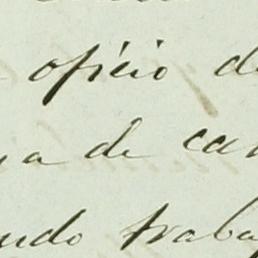 oficio d
a de ca
ndo traba